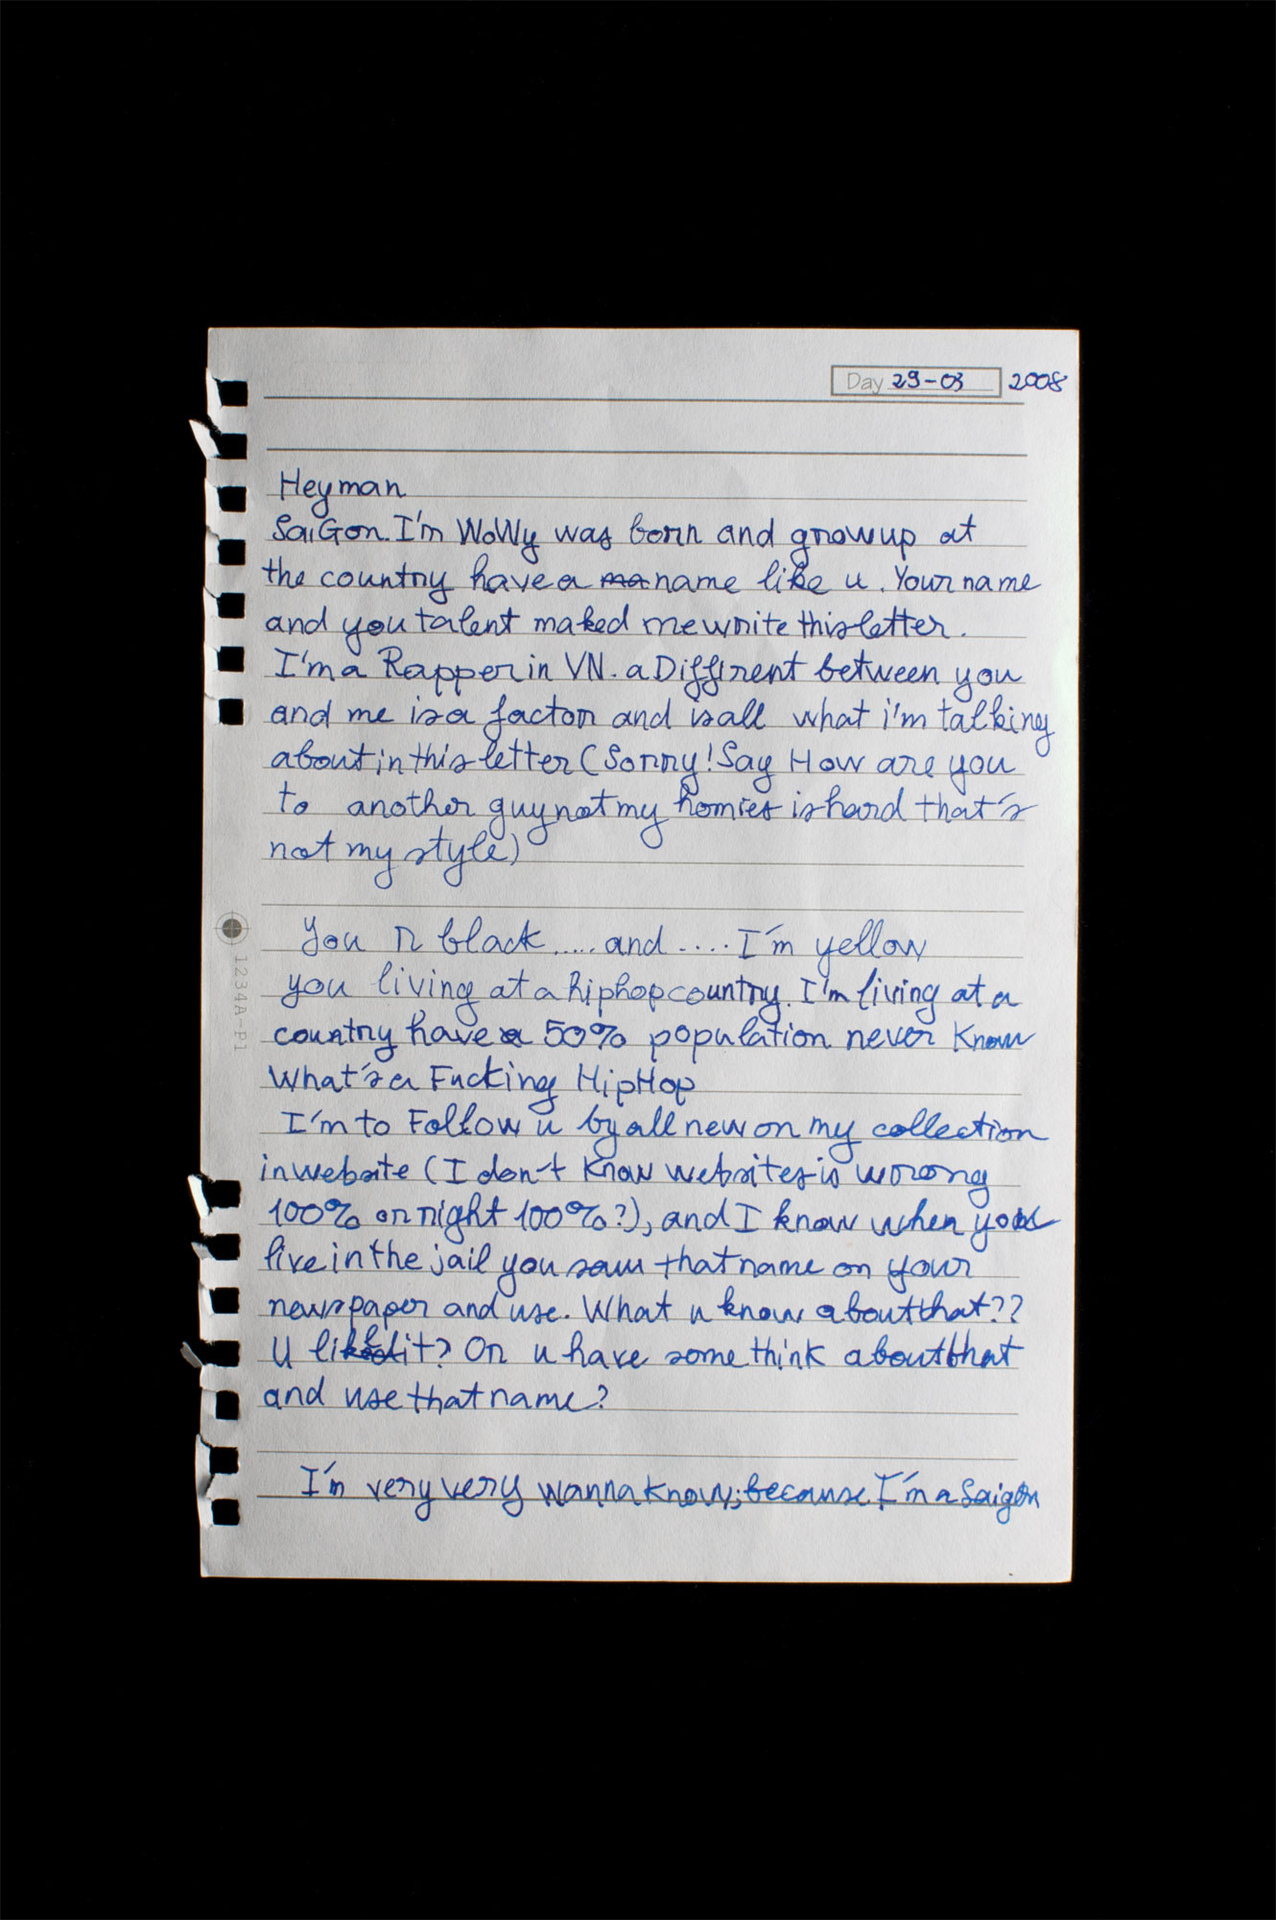 Day 29-03 2008
Hey man
SaiGon. I'm WoWy was born and grow up at
the country have a ma name like u. Your name
and you talent maked me write this letter.
I'm a Rapper in VN. a Diffirent between you
and me is a factor and is all what i'm talking
about in this letter (Sorry! Say How are you
to another guy not my homies is hard that's
not my style)
You R black ..... and .... I'm yellow
you living at a hiphop country. I'm living at a
country have a 50% population never Know
What's a Fucking HipHop
I'm to Follow u by all new on my collection
in website (I don't Know websites is worong
100% or right 100%?), and I know when you
live in the jail you saw that name on your
newspaper and use. What u know about that??
U like it? Or u have some think about that
and use that name?
I'm very very wanna know; because I'm a Saigon
1234A-P1